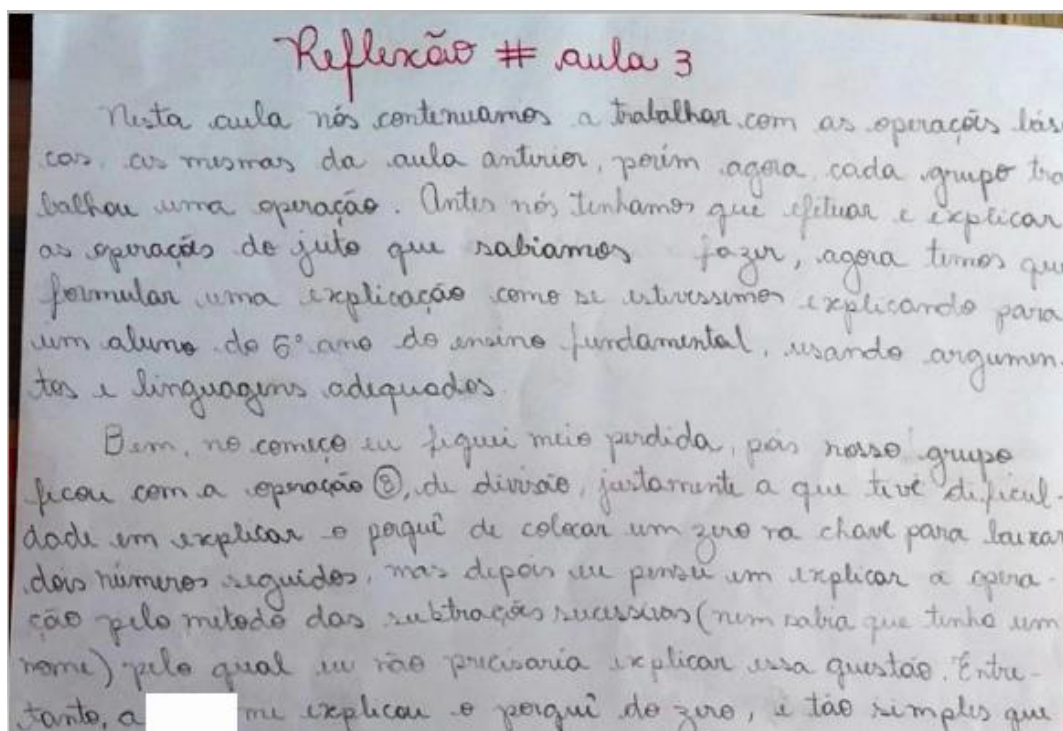 Reflexão # aula 3
Nesta aula nós continuamos a trabalhar com as operações bási
cas, as mesmas da aula anterior, porém agora cada grupo tra
balhou uma operação. Antes nós tinhamos que efetuar e explicar
as operações do jeito que sabiamos fazer, agora temos que
formular uma explicação como se estivessimos explicando para
um aluno do 6° ano do ensino fundamental, usando argumen-
tos e linguagens adequados.
Bem, no começo eu fiquei meio perdida, pois nosso grupo
ficou com a operação ⑧, de divisão, justamente a que tive dificul-
dade em explicar o porquê de colocar um zero na chave para baixar
dois números seguidos, mas depois eu pensei em explicar a opera-
ção pelo metodo das subtrações sucessivas (nem sabia que tinha um
nome) pelo qual eu não precisaria explicar essa questão. Entre-
tanto, a me explicou o porquê do zero, é tão simples que